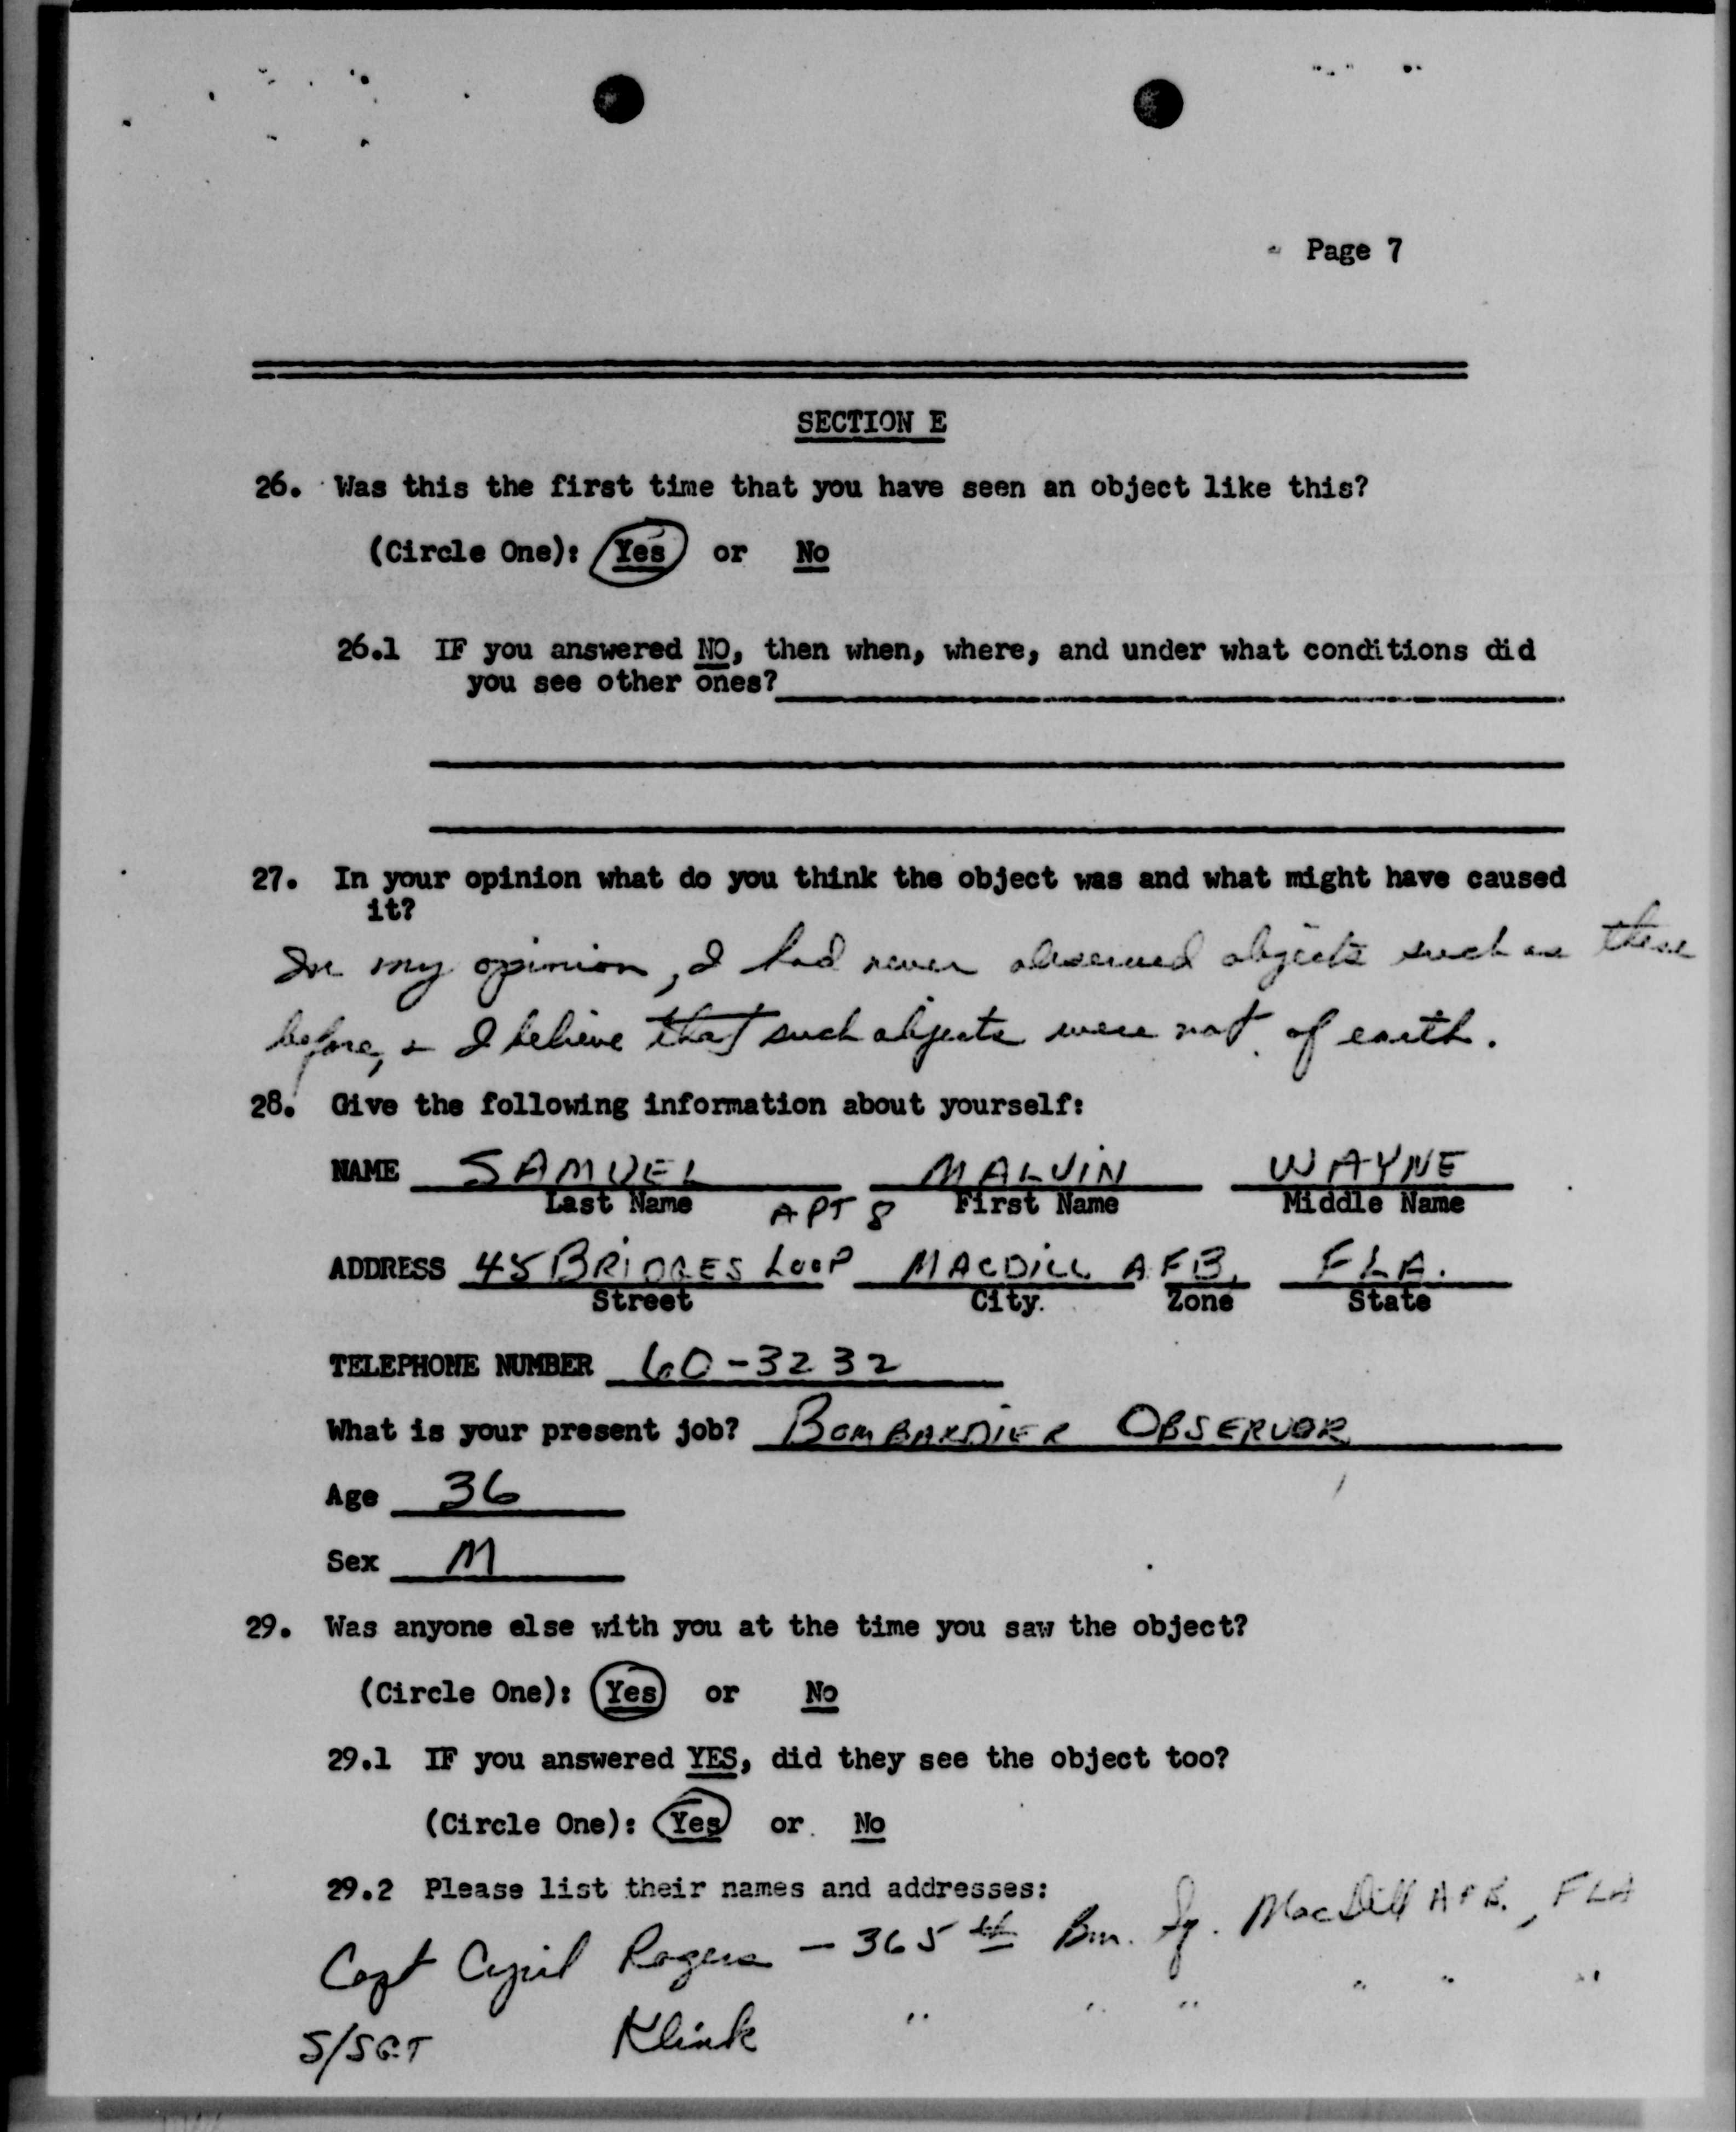 Page 7
SECTION E
26. Was this the first time that you have seen an object like this?
(Circle One): Yes or No
26.1 IF you answered NO, then when, where, and under what conditions did
you see other ones?
27. In your opinion what do you think the object was and what might have caused
it?
In my opinion, I had never observed objects such as these
before, & I believe that such objects were not of earth.
28. Give the following information about yourself:
NAME SAMUEL MALVIN WAYNE
Last Name First Name Middle Name
APT 8
ADDRESS 45 BRIDGES LOOP MACDILL AFB, FLA.
Street City. Zone State
TELEPHONE NUMBER 60-3232
What is your present job? BOMBARDIER OBSERVOR
Age 36
Sex M
29. Was anyone else with you at the time you saw the object?
(Circle One): Yes or No
29.1 IF you answered YES, did they see the object too?
(Circle One): Yes or. No
29.2 Please list their names and addresses:
Capt Cyril Rogers - 365th Bm. Sq. MacDill AFB, FLA
S/SGT Klink " " " " " "